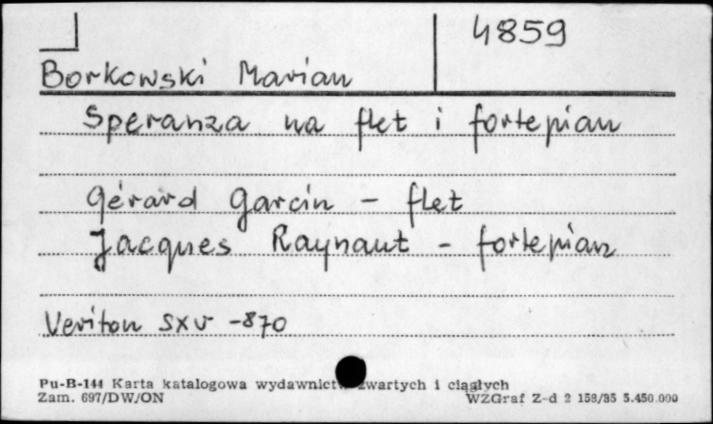 4859
Borkowski Marian
Speranza na flet i fortepian
Gérard Garcin - flet
Jacques Raynaut - fortepian
Veriton SXV -870
Pu-B-144 Karta katalogowa wydawnictw zwartych i ciągłych
Zam. 697/DW/ON WZGraf Z-d 2 158/85 5.450.000